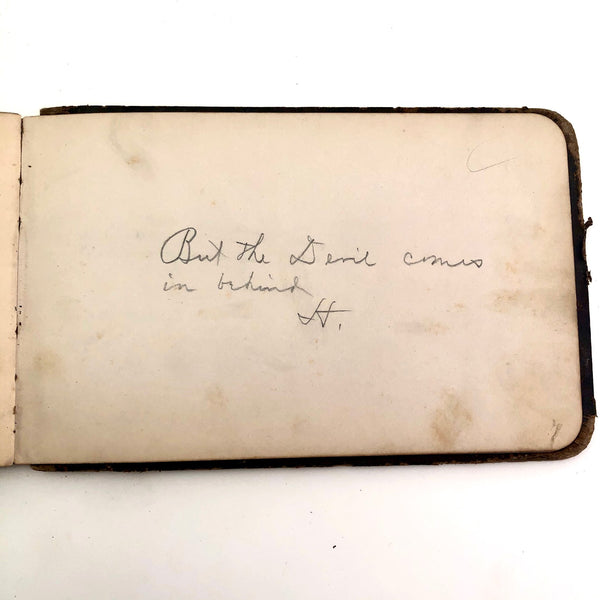 But the Devil comes
in behind
H.